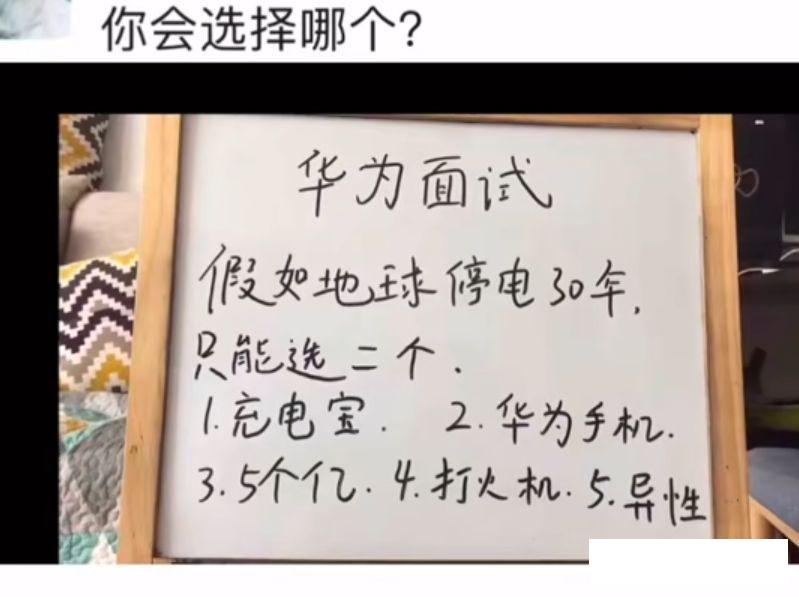 你会选择哪个?
华为面试
假如地球停电30年,
只能选二个.
1.充电宝. 2.华为手机.
3.5个亿. 4.打火机. 5.异性